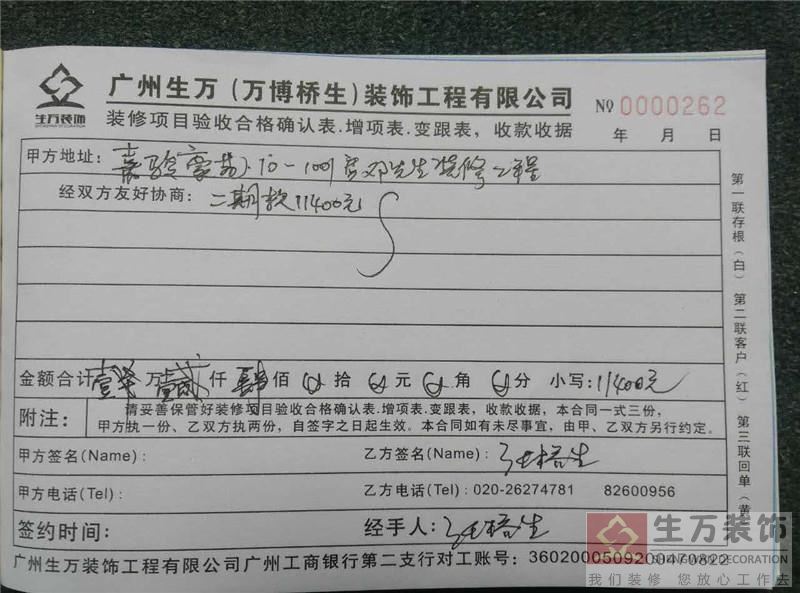 生万装饰
广州生万（万博桥生）装饰工程有限公司
装修项目验收合格确认表.增项表.变跟表，收款收据
NO 0000262
年 月 日
甲方地址：嘉骏豪苑 10-1001房邓先生装修工程
经双方友好协商：二期款11400元
金额合计 壹 万 壹 仟 肆 佰 0 拾 0 元 0 角 0 分 小写：11400元
附注：请妥善保管好装修项目验收合格确认表.增项表.变跟表，收款收据，本合同一式三份，
甲方执一份、乙方执两份，自签字之日起生效。本合同如有未尽事宜，由甲、乙双方另行约定。
甲方签名(Name)：
乙方签名(Name)：张桥生
甲方电话(Tel)：
乙方电话(Tel)：020-26274781 82600956
签约时间：
经手人：张桥生
广州生万装饰工程有限公司广州工商银行第二支行对工账号：3602000509200470822
第一联存根（白） 第二联客户（红） 第三联回单（黄）
生万装饰
SHENGWAN DECORATION
我们装修 您放心工作去